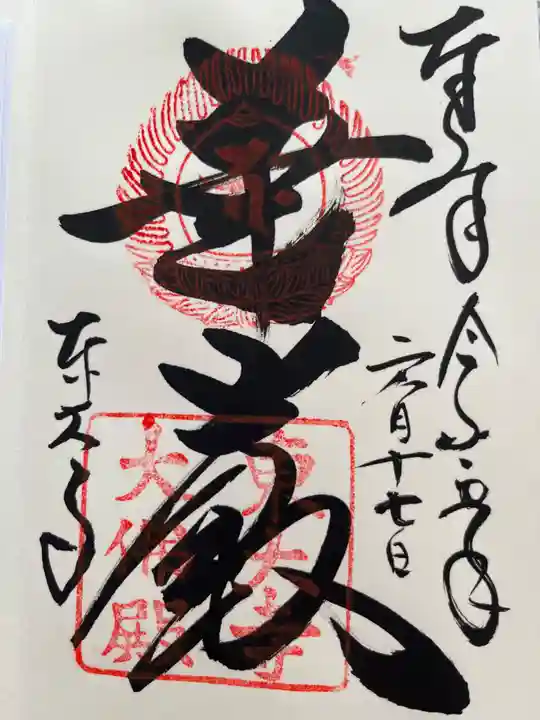 奉拝
令和五年
六月十七日
華嚴
東大寺
東大寺
大佛殿